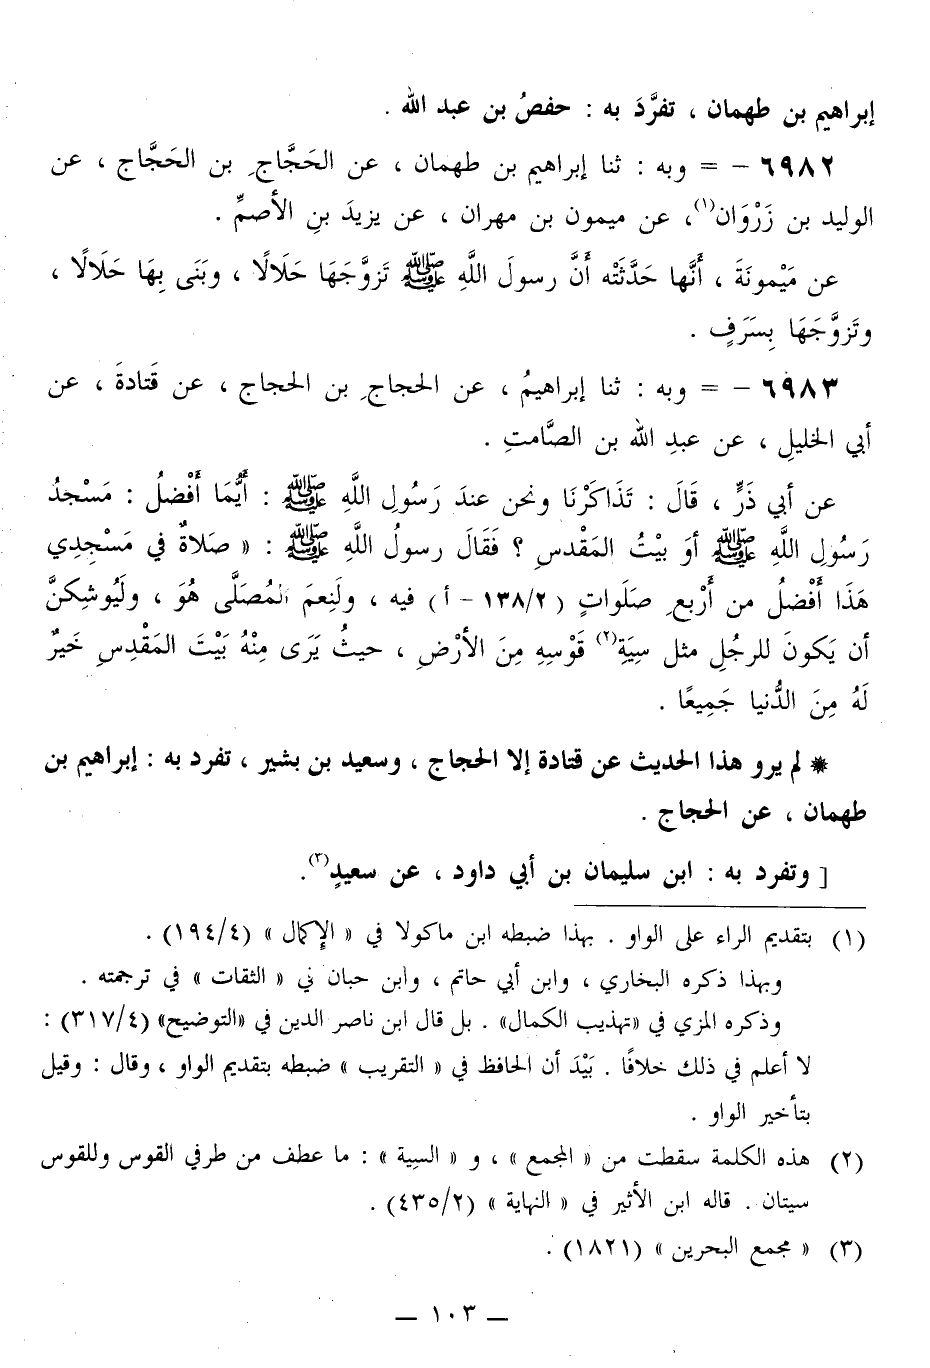 إبراهيم بن طهمان ، تفرَّدَ به : حفصُ بن عبد الله .
٦٩٨٢ – = وبه : ثنا إبراهيم بن طهمان ، عن الحَجَّاجِ بن الحَجَّاج ، عن
الوليد بن زَرْوَان(١)، عن ميمون بن مهران ، عن يزيدَ بنِ الأصمِّ .
عن مَيْمونَةَ ، أَنَّها حَدَّثَتْه أَنَّ رسولَ اللَّهِ ﷺ تَزوَّجَهَا حَلَالًا ، وبَنَى بِهَا حَلَالًا ،
وتَزوَّجَهَا بِسَرَفٍ .
٦٩٨٣ – = وبه : ثنا إبراهيمُ ، عن الحجاجِ بن الحجاج ، عن قَتادةَ ، عن
أبي الخليلِ ، عن عبدِ الله بن الصَّامتِ .
عن أبي ذَرٍّ ، قَالَ : تَذاكَرْنَا ونحن عندَ رَسُولِ اللَّهِ ﷺ : أَيُّمَا أَفْضلُ : مَسْجدُ
رَسُولِ اللَّهِ ﷺ أو بَيْتُ المَقْدسِ ؟ فَقَالَ رسولُ اللَّهِ ﷺ : « صَلاةٌ في مَسْجِدِي
هَذَا أَفْضلُ من أَرْبعِ صَلَواتٍ ( ١٣٨/٢ – أ ) فيه ، ولَنِعمَ المُصَلَّى هُوَ ، ولَيُوشِكنَّ
أن يَكونَ للرجُلِ مثل سِيَةِ(٢) قَوْسِهِ مِنَ الأرْضِ ، حيثُ يَرَى مِنْهُ بَيْتَ المَقْدِسِ خَيرٌ
لَهُ مِنَ الدُّنيا جَمِيعًا .
* لم يرو هذا الحديث عن قتادة إلا الحجاج ، وسعيد بن بشير ، تفرد به : إبراهيم بن
طهمان ، عن الحجاج .
[ وتفرد به : ابن سليمان بن أبي داود ، عن سعيدٍ(٣).
(١) بتقديم الراء على الواو . بهذا ضبطه ابن ماكولا في « الإكمال » (١٩٤/٤) .
وبهذا ذكره البخاري ، وابن أبي حاتم ، وابن حبان ني « الثقات » في ترجمته .
وذكره المزي في «تهذيب الكمال» . بل قال ابن ناصر الدين في «التوضيح» (٣١٧/٤) :
لا أعلم في ذلك خلافًا . بَيْدَ أن الحافظ في « التقريب » ضبطه بتقديم الواو ، وقال : وقيل
بتأخير الواو .
(٢) هذه الكلمة سقطت من « المجمع » ، و « السِية » : ما عطف من طرفي القوس وللقوس
سيتان . قاله ابن الأثير في « النهاية » (٤٣٥/٢) .
(٣) « مجمع البحرين » (١٨٢١) .
— ١٠٣ —